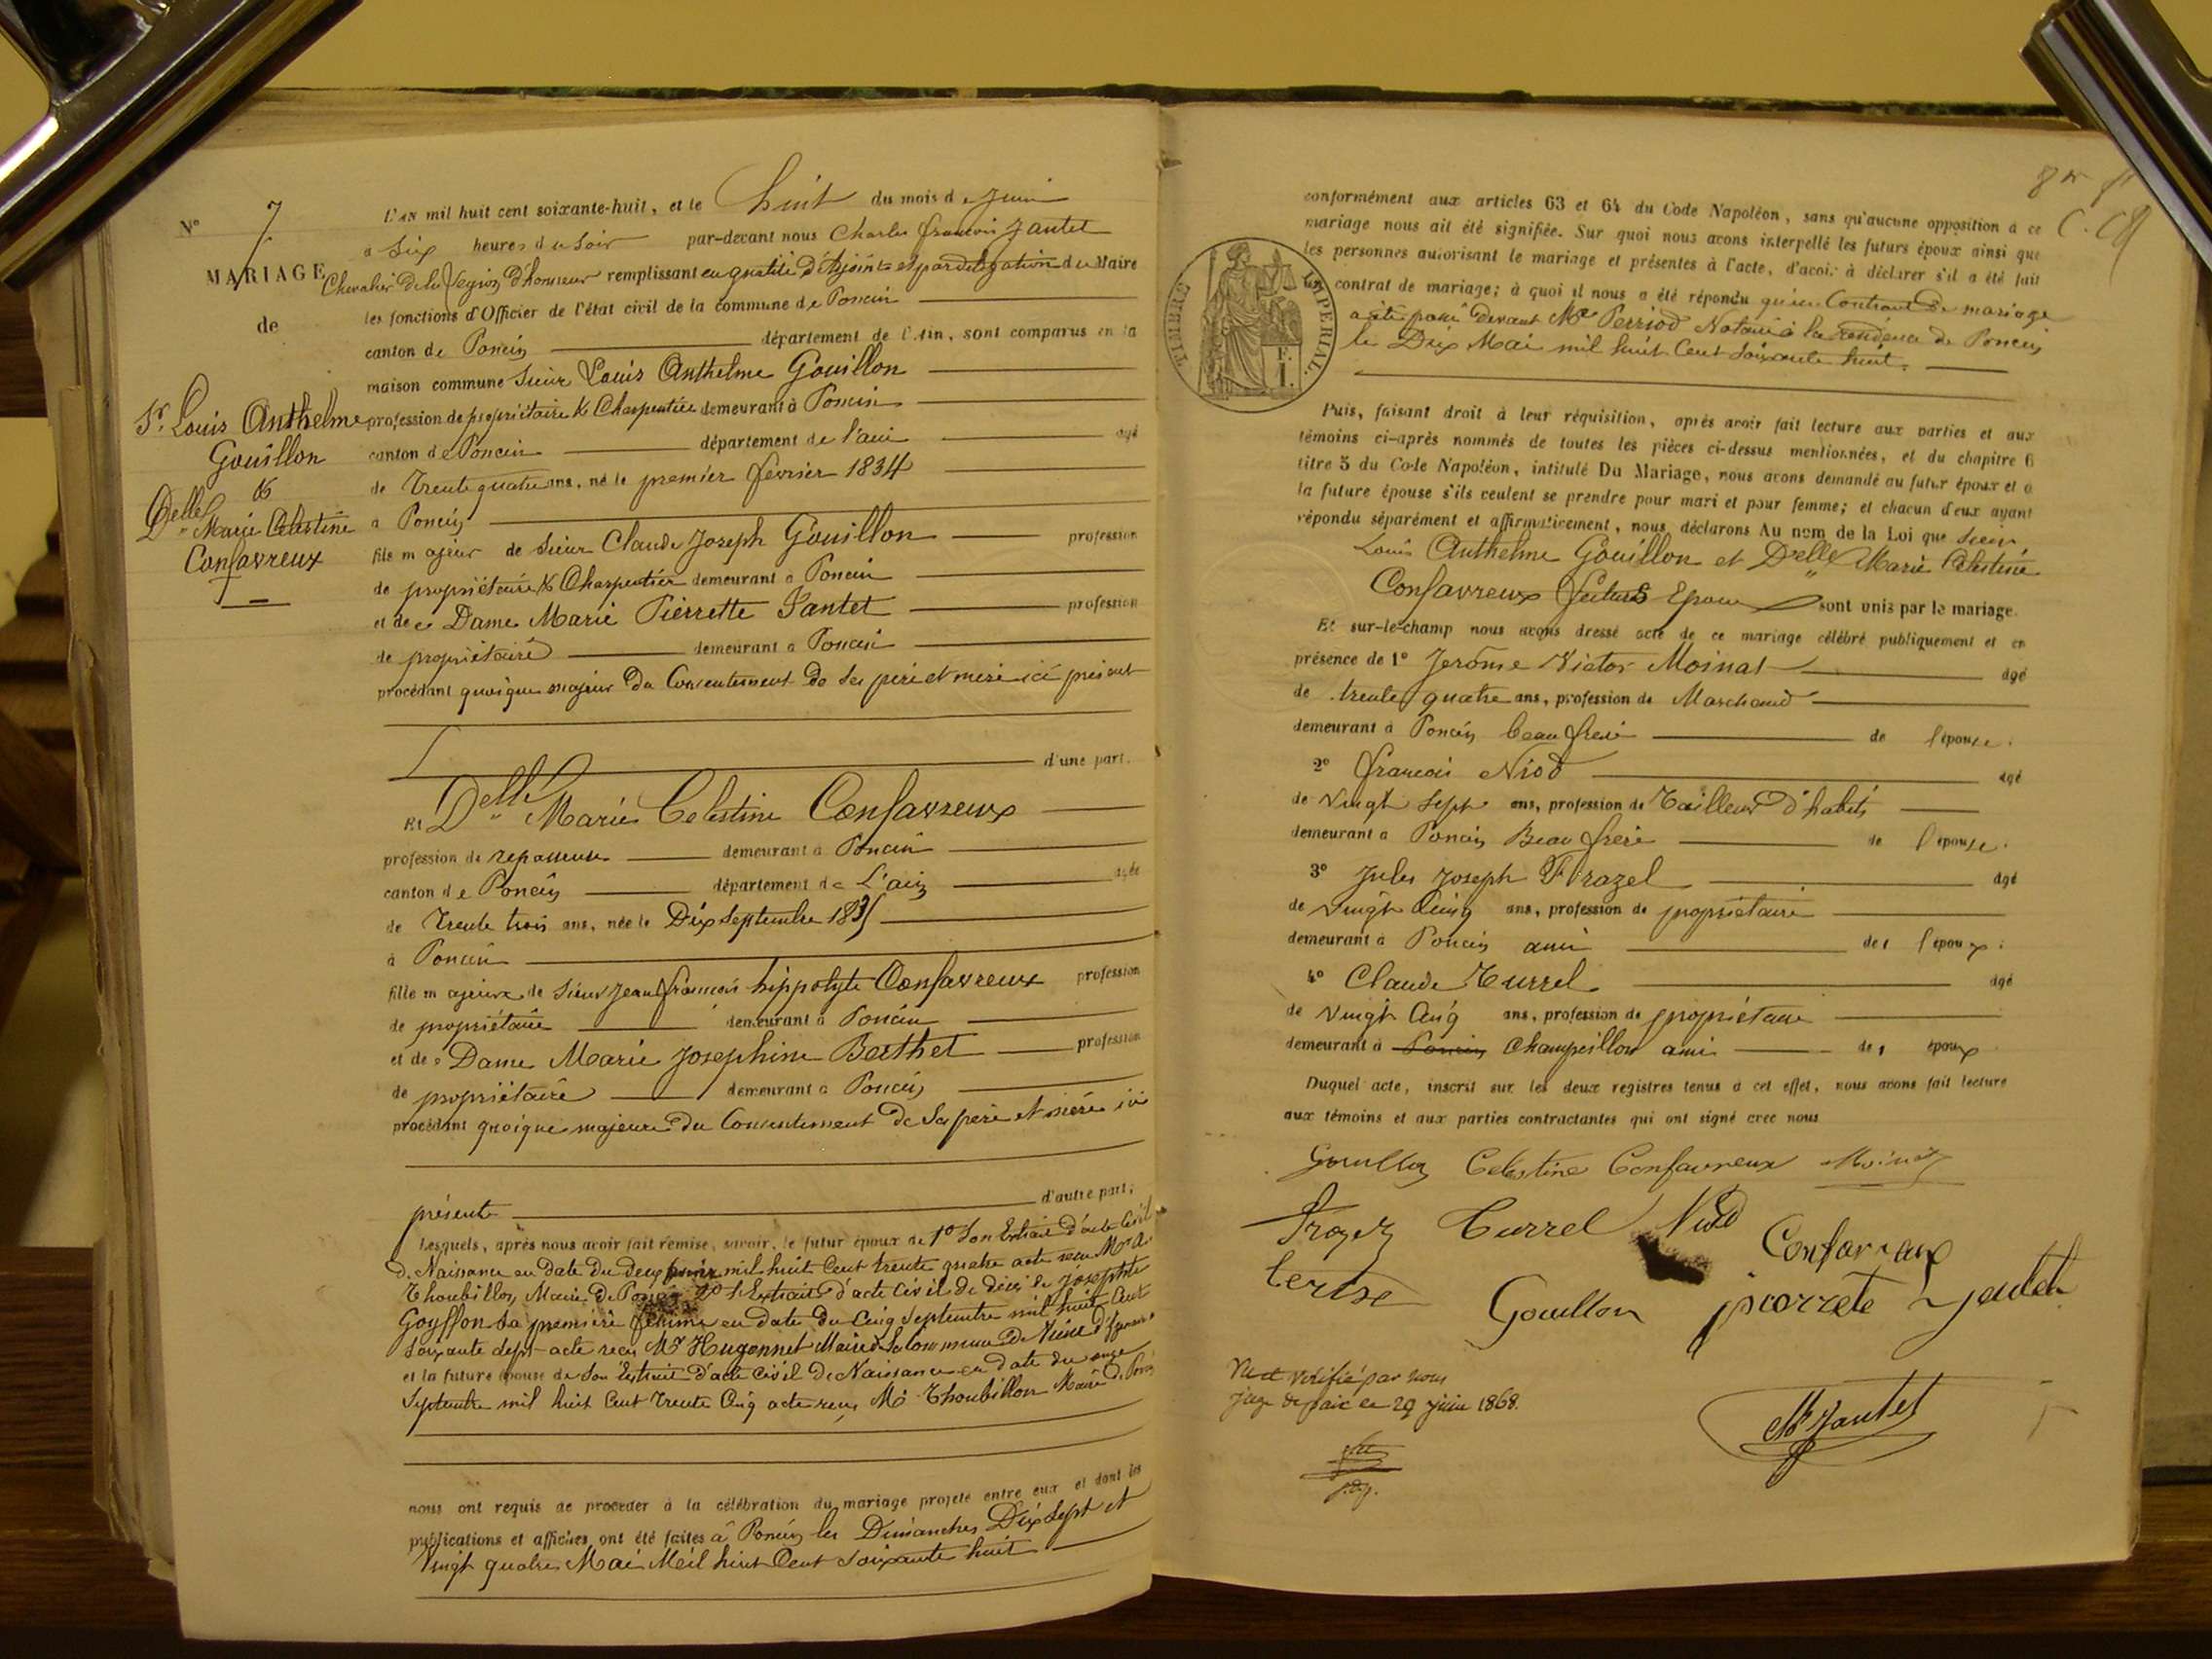 N° 7
MARIAGE
de
Sr. Louis Anthelme
Gouillon
&
Delle Marie Celestine
Confavreux
L'AN mil huit cent soixante-huit, et le huit du mois de Juin
a Six heures du Soir par-devant nous Charles françois Jantet
Chevalier de la Legion d'honneur remplissant en qualité d'Adjoint et par délégation du Maire
les fonctions d'Officier de l'état civil de la commune de Poncin
canton de Poncin département de l'Ain, sont comparus en la
maison commune Sieur Louis Anthelme Gouillon
profession de propriétaire & Charpentier demeurant à Poncin
canton de Poncin département de l'ain agé
de Trente quatre ans, né le premier février 1834
a Poncin
fils majeur de Sieur Claude Joseph Gouillon profession
de propriétaire & Charpentier demeurant a Poncin
et de Dame Marie Pierrette Jantet profession
de propriétaire demeurant a Poncin
procédant quoique majeur du Consentement de ses père et mère ici présent
d'une part.
Et Delle Marie Celestine Confavreux
profession de repasseuse demeurant à Poncin
canton de Poncin département de L'ain agée
de Trente trois ans, née le Dix Septembre 1835
à Poncin
fille majeure de Sieur Jean françois hippolyte Confavreux profession
de propriétaire demeurant à Poncin
et de Dame Marie Josephine Berthet profession
de propriétaire demeurant a Poncin
procédant quoique majeure du Consentement de Ses père et mère ici
présents d'autre part;
Lesquels, après nous avoir fait remise, savoir, le futur époux de 1° Son Extrait d'acte Civil
de Naissance en date du deux mil huit Cent trente quatre acte reçu Mr A.
Thoubillon, Maire de Poncin 2° l'Extrait d'acte civil de décès de Josephte
Goyffon sa première femme en date du Cinq Septembre mil huit Cent
Soixante Sept acte reçu Mr Hugonnet Maire de la commune de
et la future épouse de Son Extrait d'acte civil de Naissance en date du onze
Septembre mil huit Cent Trente Cinq acte reçu Mr Thoubillon Maire de Poncin
nous ont requis de proceder à la célébration du mariage projeté entre eux et dont les
publications et affiches ont été faites à Poncin les Dimanches Dix Sept et
Vingt quatre Mai Mil huit Cent Soixante huit
TIMBRE IMPERIAL.
conformément aux articles 63 et 64 du Code Napoléon, sans qu'aucune opposition à ce
mariage nous ait été signifiée. Sur quoi nous avons interpellé les futurs époux ainsi que
les personnes autorisant le mariage et présentes à l'acte, d'avoir à déclarer s'il a été fait
un contrat de mariage; à quoi il nous a été répondu qu'un Contrat de mariage
a été passé devant Me Perriod Notaire à la résidence de Poncin
le Dix Mai mil huit Cent Soixante huit.
Puis, faisant droit à leur réquisition, après avoir fait lecture aux parties et aux
témoins ci-après nommés de toutes les pièces ci-dessus mentionnées, et du chapitre 6
titre 5 du Code Napoléon, intitulé Du Mariage, nous avons demandé au futur époux et à
la future épouse s'ils veulent se prendre pour mari et pour femme; et chacun d'eux ayant
répondu séparément et affirmativement, nous déclarons Au nom de la Loi que Sieur
Louis Anthelme Gouillon et Delle Marie Celestine
Confavreux futurs Epoux sont unis par le mariage.
Et sur-le-champ nous avons dressé acte de ce mariage célébré publiquement et en
présence de 1° Jerôme Victor Moinat agé
de trente quatre ans, profession de Marchand
demeurant à Poncin beau frere de l'épouse.
2° françois Niod agé
de Vingt Sept ans, profession de Tailleur d'habits
demeurant a Poncin Beau frere de l'épouse.
3° Jules Joseph Frazel agé
de Vingt Cinq ans, profession de propriétaire
demeurant à Poncin ami de l'époux.
4° Claude Turrel agé
de Vingt Cinq ans, profession de propriétaire
demeurant à Poncin Champeillon ami de l'époux
Duquel acte, inscrit sur les deux registres tenus à cet effet, nous avons fait lecture
aux témoins et aux parties contractantes qui ont signé avec nous
Gouillon Celestine Confavreux Moinat
Turrel Niod
Confavreux
Gouillon pierrete Jantet
Vu et vérifié par nous
Juge de paix le 29 juin 1868.
Jantet